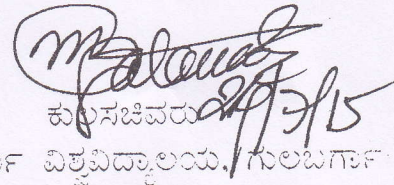 24/7/15
ಕುಲಸಚಿವರು
ವಿಶ್ವವಿದ್ಯಾಲಯ, ಗುಲಬರ್ಗಾ